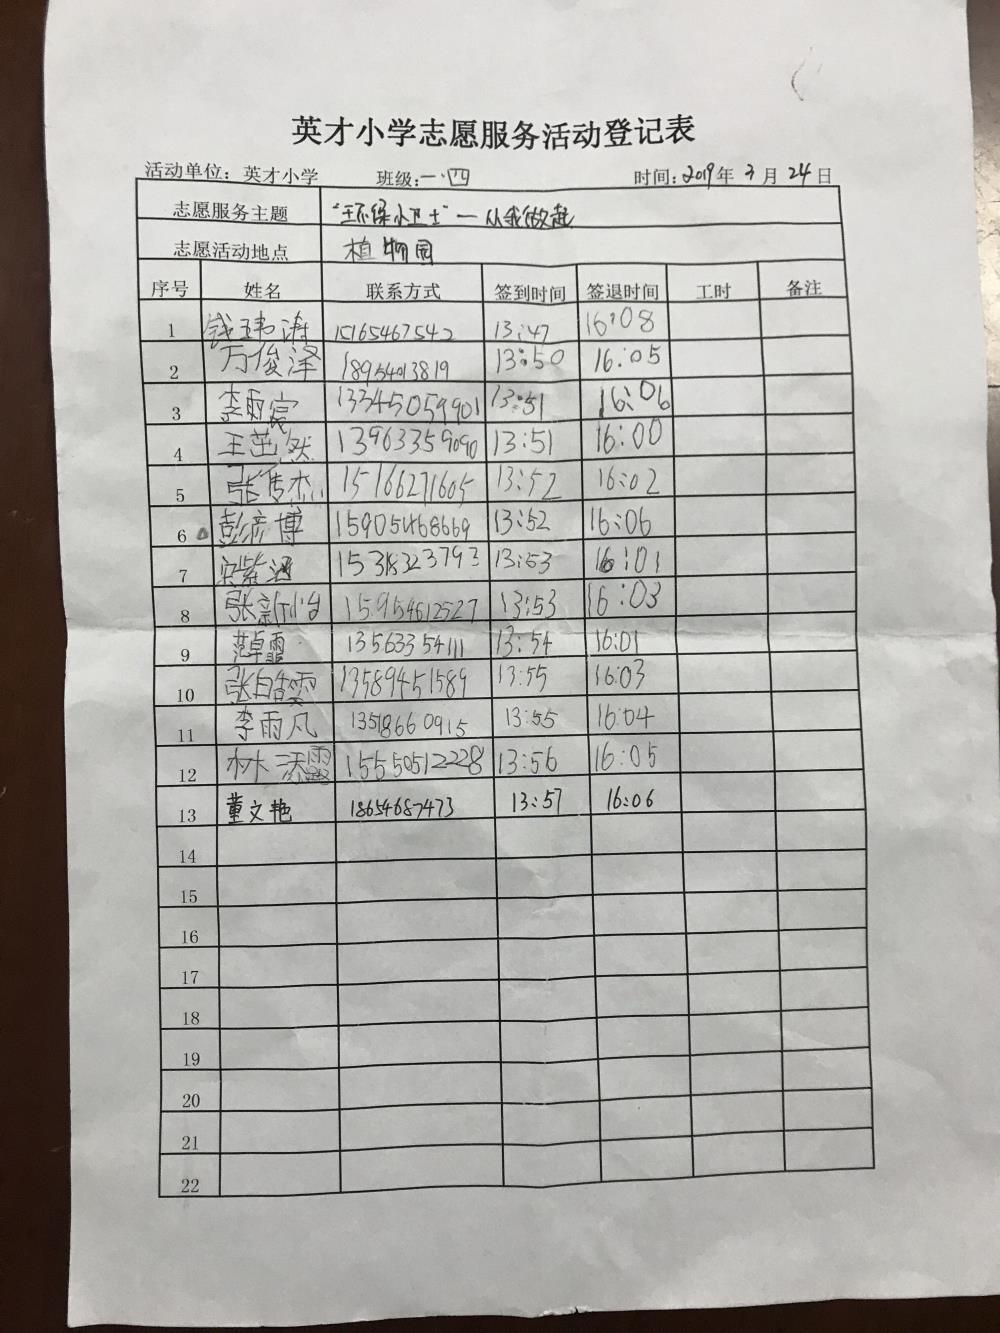 英才小学志愿服务活动登记表
活动单位：英才小学 班级：一.四 时间：2019年3月24日
志愿服务主题 "环保小卫士"—从我做起
志愿活动地点 植物园
序号 姓名 联系方式 签到时间 签退时间 工时 备注
1 钱玮涛 15165467542 13:47 16:08
2 万俊泽 18954013819 13:50 16:05
3 李雨宸 13345059901 13:51 16:06
4 王茁然 13963359090 13:51 16:00
5 张传杰 15166271605 13:52 16:02
6 彭彦博 15905468669 13:52 16:06
7 紫涵 15318323793 13:53 16:01
8 张新怡 15954612527 13:53 16:03
9 范卓霏 13563354111 13:54 16:01
10 张皓雯 13589451589 13:55 16:03
11 李雨凡 13518660915 13:55 16:04
12 林添露 15550512228 13:56 16:05
13 董文艳 18654687473 13:57 16:06
14
15
16
17
18
19
20
21
22